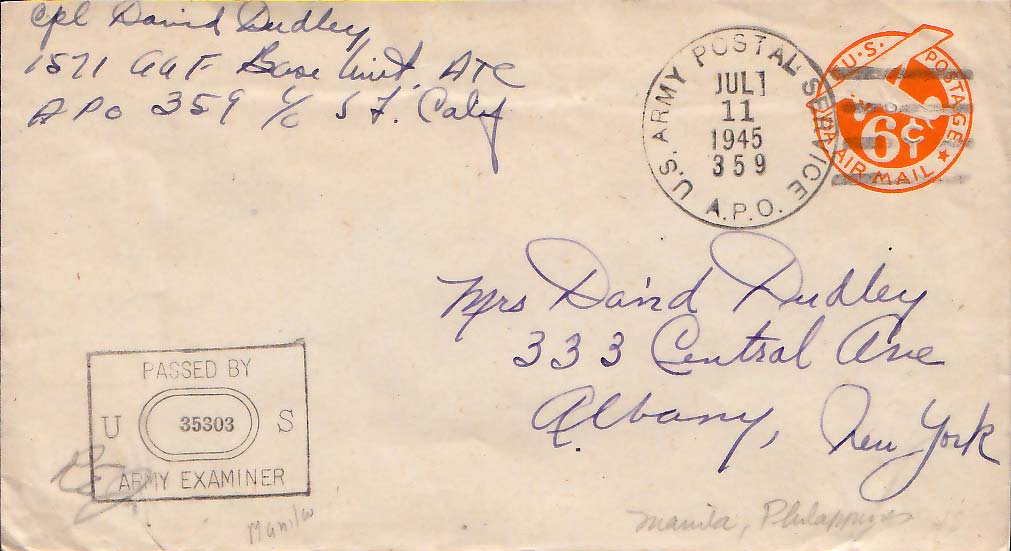 Cpl David Dudley
1571 AAF Base Unit ATC
APO 359 c/o S F. Calif
U.S. ARMY POSTAL SERVICE
JUL 1
11
1945
359
A.P.O.
U.S. POSTAGE
VIA AIR MAIL
6¢
Mrs David Dudley
333 Central Ave
Albany, New York
PASSED BY
U 35303 S
ARMY EXAMINER
Manila
Manila, Philappines